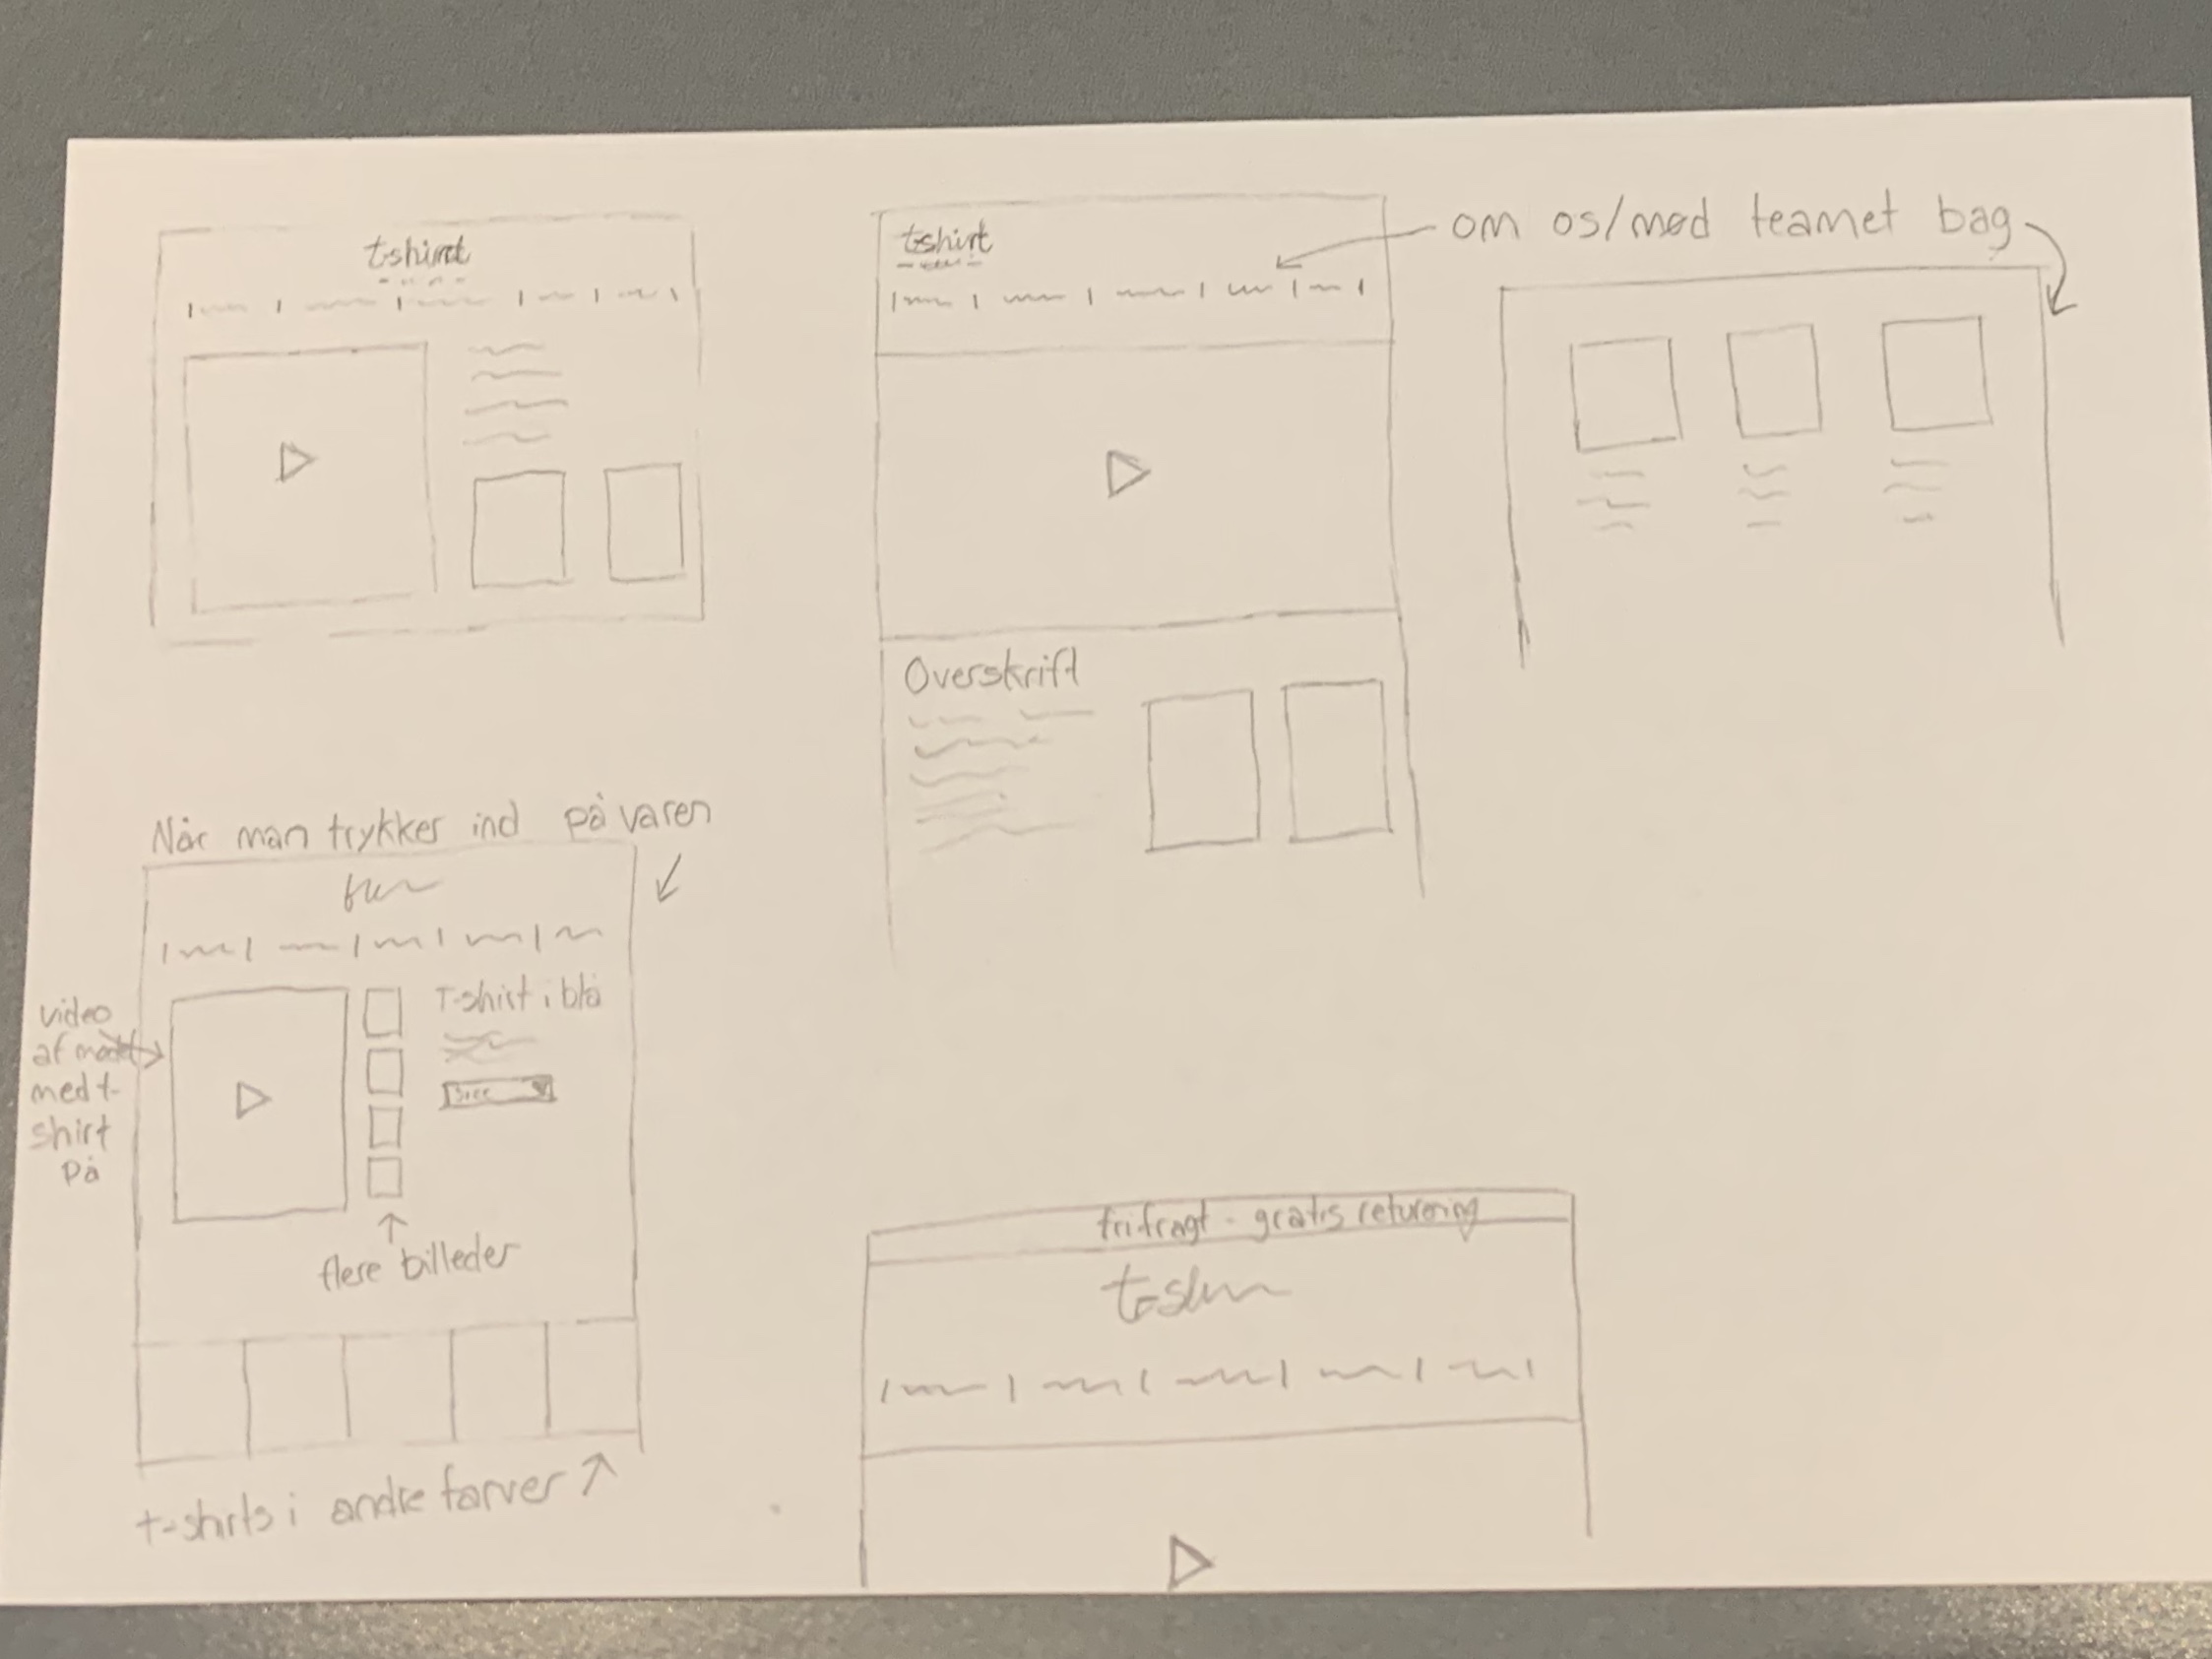 t-shirt
t-shirt
om os/mød teamet bag
Overskrift
Når man trykker ind på varen
T-shirt i blå
video
af model
med t-
shirt
på
flere billeder
t-shirts i andre farver
fri fragt - gratis returnering